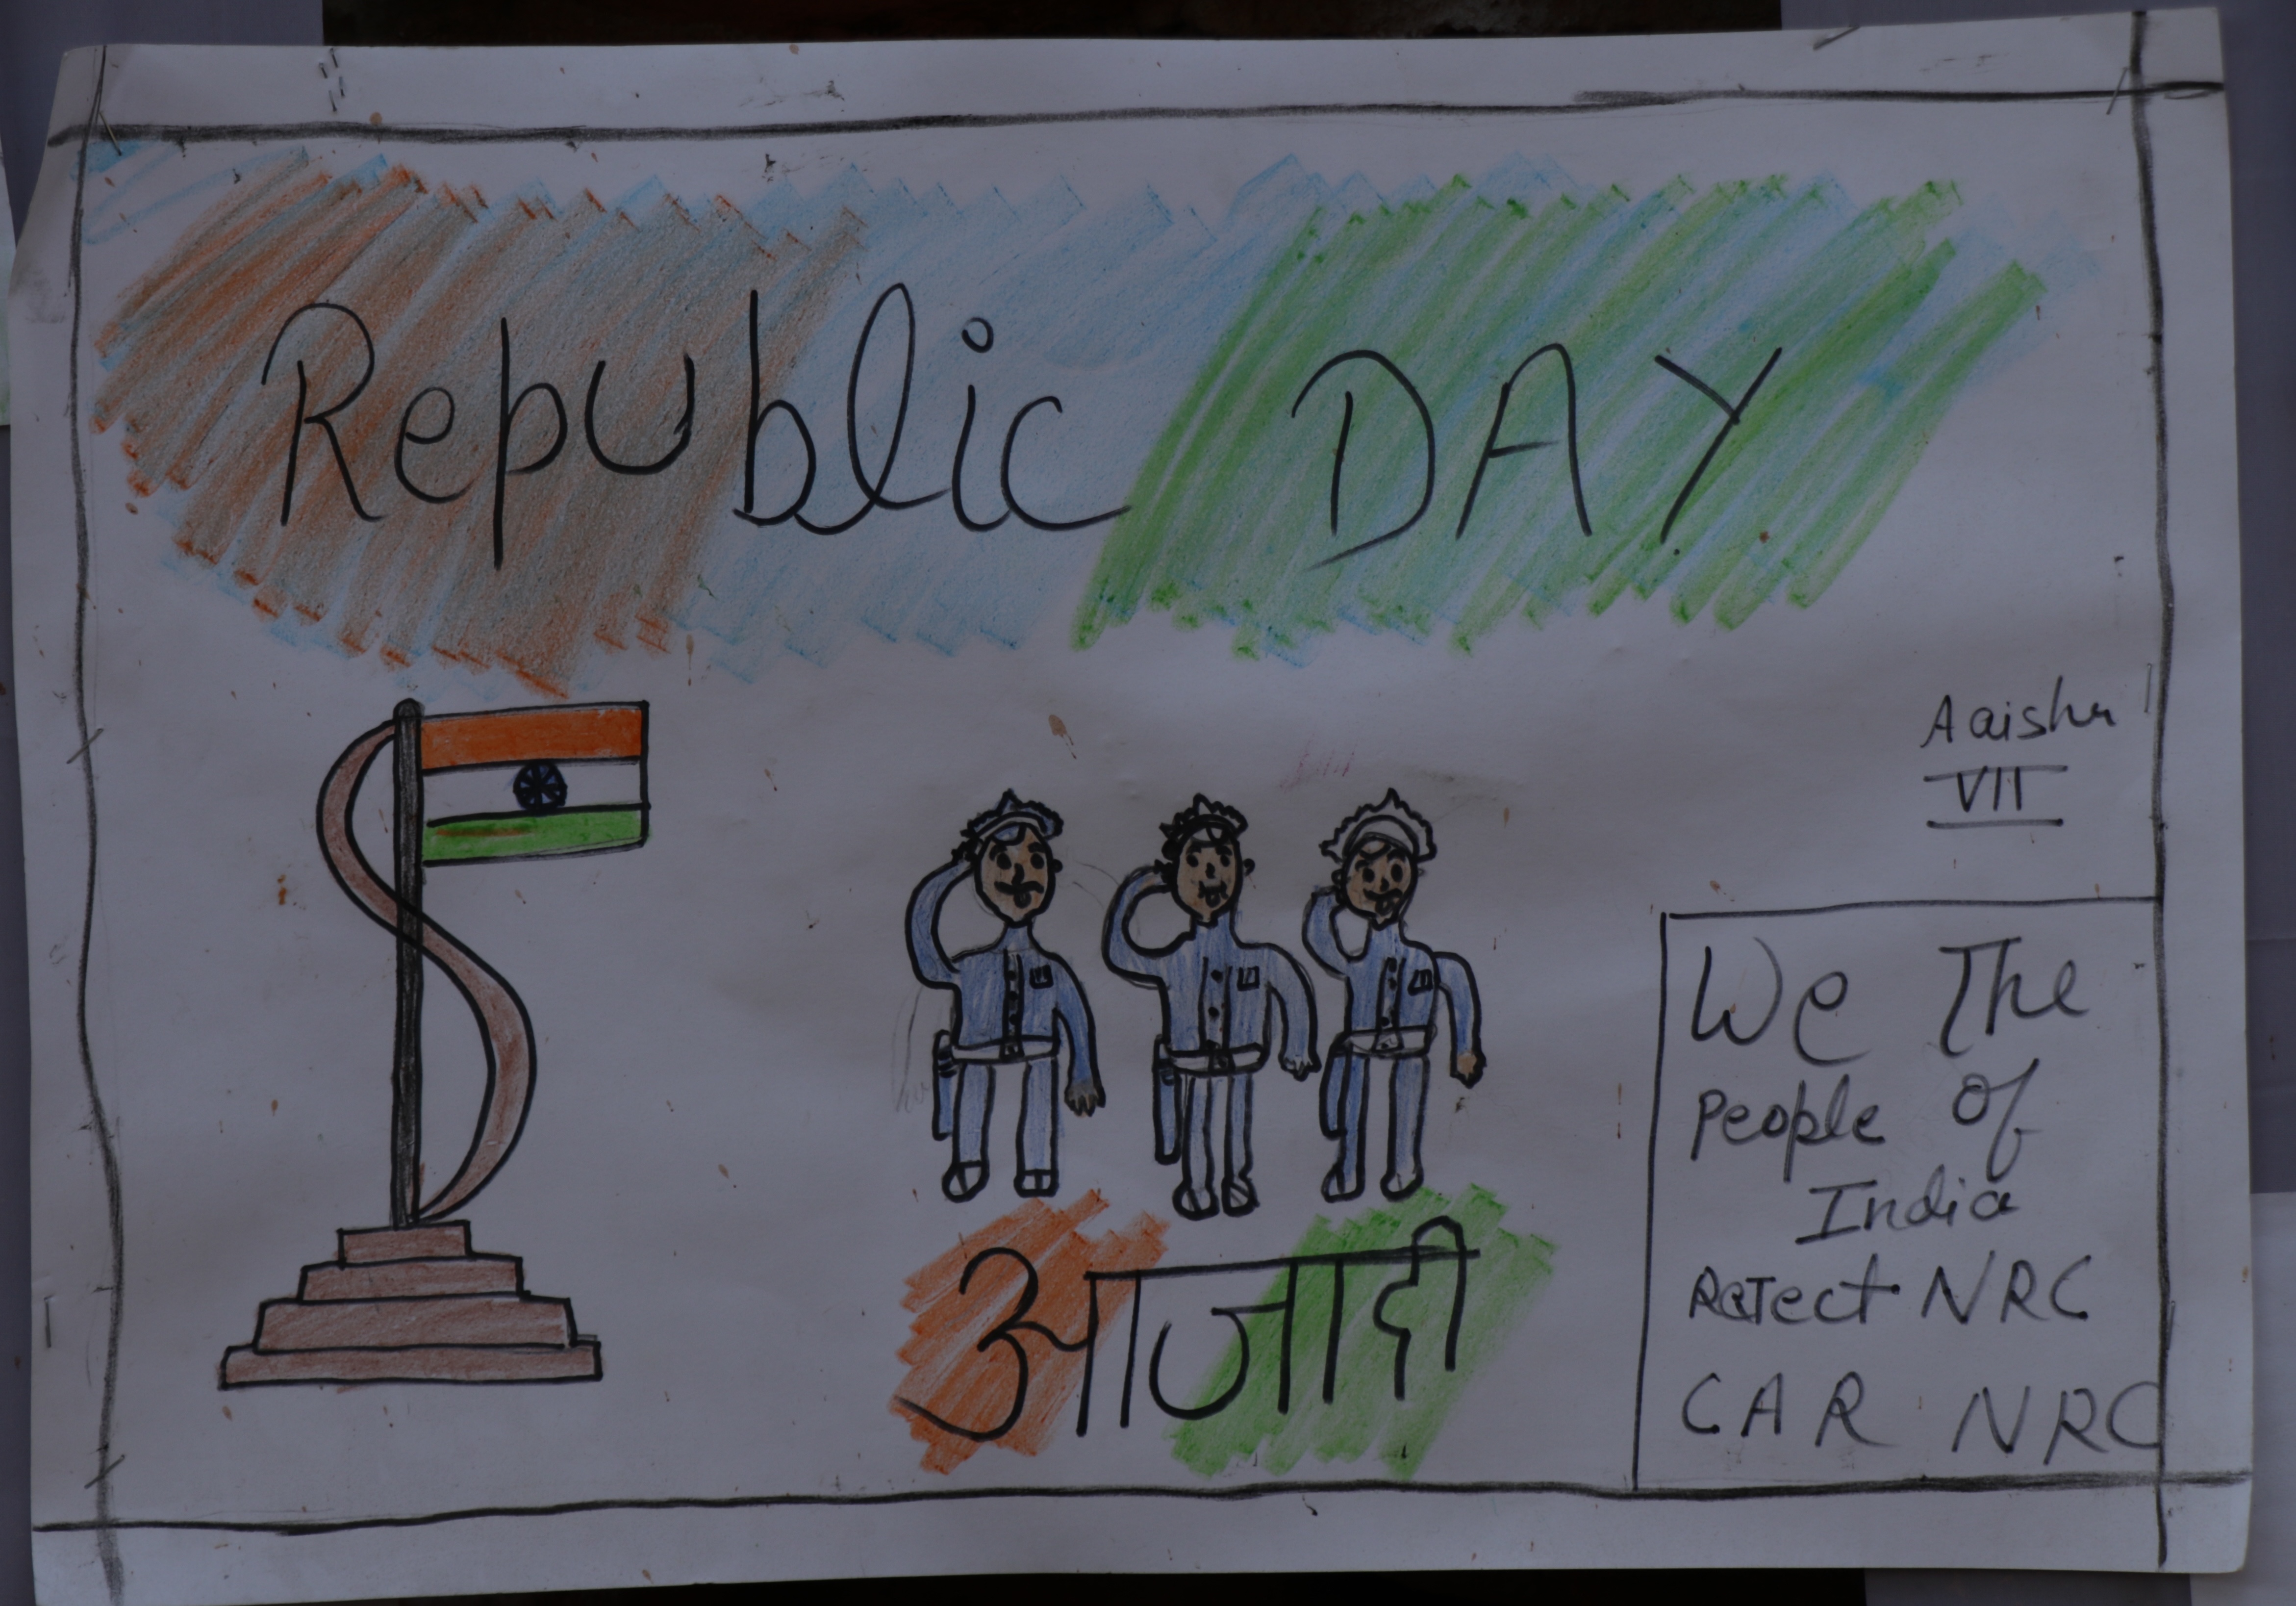 Republic DAY
Aaisha
VII
We The
People of
India
ReJect NRC
CAR NRC
आजादी